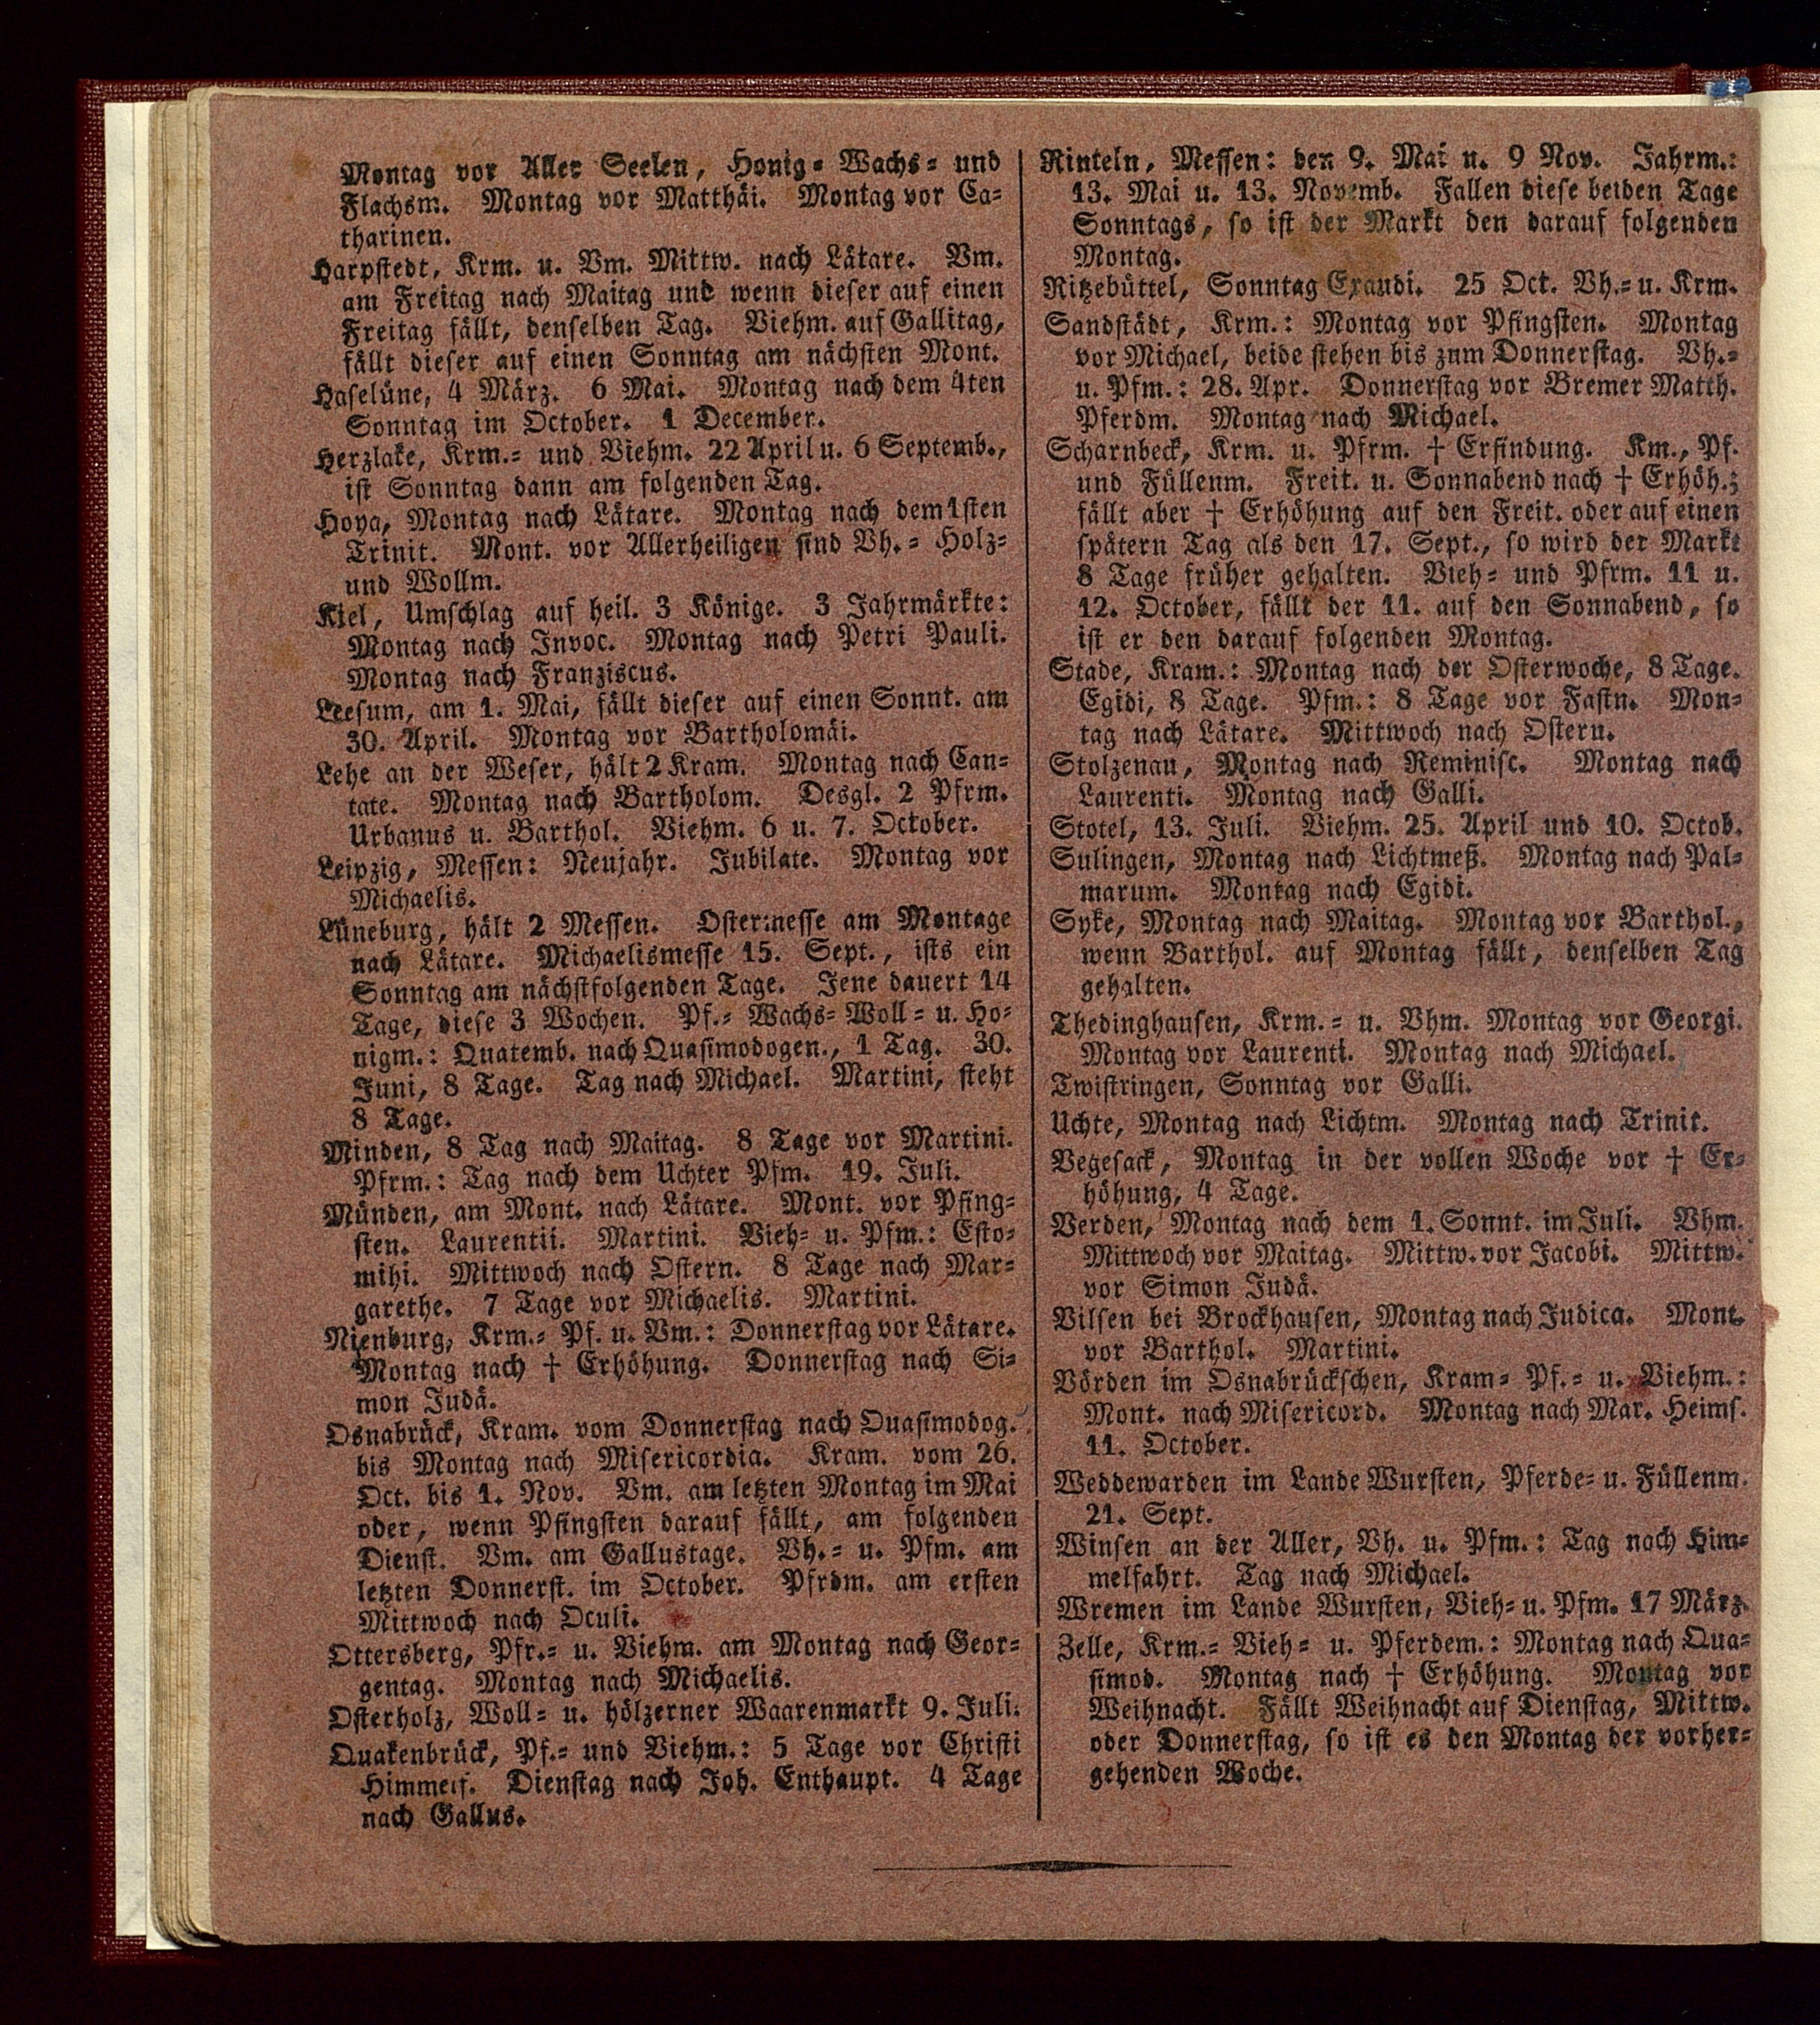 Montag vor Aller Seelen, Honig= Wachs= und
Flachsm. Montag vor Matthäi. Montag vor Ca=
tharinen.
Harpstedt, Krm. u. Vm. Mittw. nach Lätare. Vm.
am Freitag nach Maitag und wenn dieser auf einen
Freitag fällt, denselben Tag. Viehm. auf Gallitag,
fällt dieser auf einen Sonntag am nächsten Mont.
Haselüne, 4 März. 6 Mai. Montag nach dem 4ten
Sonntag im October. 1 December.
Herzlake, Krm.= und Viehm. 22 April u. 6 Septemb.,
ist Sonntag dann am folgenden Tag.
Hoya, Montag nach Lätare. Montag nach dem 1sten
Trinit. Mont. vor Allerheiligen sind Vh.= Holz=
und Wollm.
Kiel, Umschlag auf heil. 3 Könige. 3 Jahrmärkte:
Montag nach Invoc. Montag nach Petri Pauli.
Montag nach Franziscus.
Leesum, am 1. Mai, fällt dieser auf einen Sonnt. am
30. April. Montag vor Bartholomäi.
Lehe an der Weser, hält 2 Kram. Montag nach Can=
tate. Montag nach Bartholom. Desgl. 2 Pfrm.
Urbanus u. Barthol. Viehm. 6 u. 7. October.
Leipzig, Messen: Neujahr. Jubilate. Montag vor
Michaelis.
Lüneburg, hält 2 Messen. Ostermesse am Montage
nach Lätare. Michaelismesse 15. Sept., ists ein
Sonntag am nächstfolgenden Tage. Jene dauert 14
Tage, diese 3 Wochen. Pf.= Wachs= Woll= u. Ho=
nigm.: Quatemb. nach Quasimodogen., 1 Tag. 30.
Juni, 8 Tage. Tag nach Michael. Martini, steht
8 Tage.
Minden, 8 Tag nach Maitag. 8 Tage vor Martini.
Pfrm.: Tag nach dem Uchter Pfm. 19. Juli.
Münden, am Mont. nach Lätare. Mont. vor Pfing=
sten. Laurentii. Martini. Vieh= u. Pfm.: Esto=
mihi. Mittwoch nach Ostern. 8 Tage nach Mar=
garethe. 7 Tage vor Michaelis. Martini.
Nienburg, Krm.= Pf. u. Vm.: Donnerstag vor Lätare.
Montag nach † Erhöhung. Donnerstag nach Si=
mon Judä.
Osnabrück, Kram. vom Donnerstag nach Quasimodog.
bis Montag nach Misericordia. Kram. vom 26.
Oct. bis 1. Nov. Vm. am letzten Montag im Mai
oder, wenn Pfingsten darauf fällt, am folgenden
Dienst. Vm. am Gallustage. Vh.= u. Pfm. am
letzten Donnerst. im October. Pfrdm. am ersten
Mittwoch nach Oculi.
Ottersberg, Pfr.= u. Viehm. am Montag nach Geor=
gentag. Montag nach Michaelis.
Osterholz, Woll= u. hölzerner Waarenmarkt 9. Juli.
Quakenbrück, Pf.= und Viehm.: 5 Tage vor Christi
Himmelf. Dienstag nach Joh. Enthaupt. 4 Tage
nach Gallus.
Rinteln, Messen: den 9. Mai u. 9 Nov. Jahrm.:
13. Mai u. 13. Novemb. Fallen diese beiden Tage
Sonntags, so ist der Markt den darauf folgenden
Montag.
Ritzebüttel, Sonntag Exaudi. 25 Oct. Vh.= u. Krm.
Sandstädt, Krm.: Montag vor Pfingsten. Montag
vor Michael, beide stehen bis zum Donnerstag. Vh.=
u. Pfm.: 28. Apr. Donnerstag vor Bremer Matth.
Pferdm. Montag nach Michael.
Scharnbeck, Krm. u. Pfrm. † Erfindung. Km., Pf.
und Füllenm. Freit. u. Sonnabend nach † Erhöh.;
fällt aber † Erhöhung auf den Freit. oder auf einen
spätern Tag als den 17. Sept., so wird der Markt
8 Tage früher gehalten. Vieh= und Pfrm. 11 u.
12. October, fällt der 11. auf den Sonnabend, so
ist er den darauf folgenden Montag.
Stade, Kram.: Montag nach der Osterwoche, 8 Tage.
Egidi, 8 Tage. Pfm.: 8 Tage vor Fastn. Mon=
tag nach Lätare. Mittwoch nach Ostern.
Stolzenau, Montag nach Reminisc. Montag nach
Laurenti. Montag nach Galli.
Stotel, 13. Juli. Viehm. 25. April und 10. Octob.
Sulingen, Montag nach Lichtmeß. Montag nach Pal=
marum. Montag nach Egidi.
Syke, Montag nach Maitag. Montag vor Barthol.,
wenn Barthol. auf Montag fällt, denselben Tag
gehalten.
Thedinghausen, Krm.= u. Vhm. Montag vor Georgi.
Montag vor Laurenti. Montag nach Michael.
Twistringen, Sonntag vor Galli.
Uchte, Montag nach Lichtm. Montag nach Trinit.
Vegesack, Montag in der vollen Woche vor † Er=
höhung, 4 Tage.
Verden, Montag nach dem 1. Sonnt. im Juli. Vhm.
Mittwoch vor Maitag. Mittw. vor Jacobi. Mittw.
vor Simon Judä.
Vilsen bei Brockhausen, Montag nach Judica. Mont.
vor Barthol. Martini.
Vörden im Osnabrückschen, Kram= Pf.= u. Viehm.:
Mont. nach Misericord. Montag nach Mar. Heims.
11. October.
Weddewarden im Lande Wursten, Pferde= u. Füllenm.
21. Sept.
Winsen an der Aller, Vh. u. Pfm.: Tag nach Him=
melfahrt. Tag nach Michael.
Wremen im Lande Wursten, Vieh= u. Pfm. 17 März.
Zelle, Krm.= Vieh= u. Pferdem.: Montag nach Qua=
simod. Montag nach † Erhöhung. Montag vor
Weihnacht. Fällt Weihnacht auf Dienstag, Mittw.
oder Donnerstag, so ist es den Montag der vorher=
gehenden Woche.